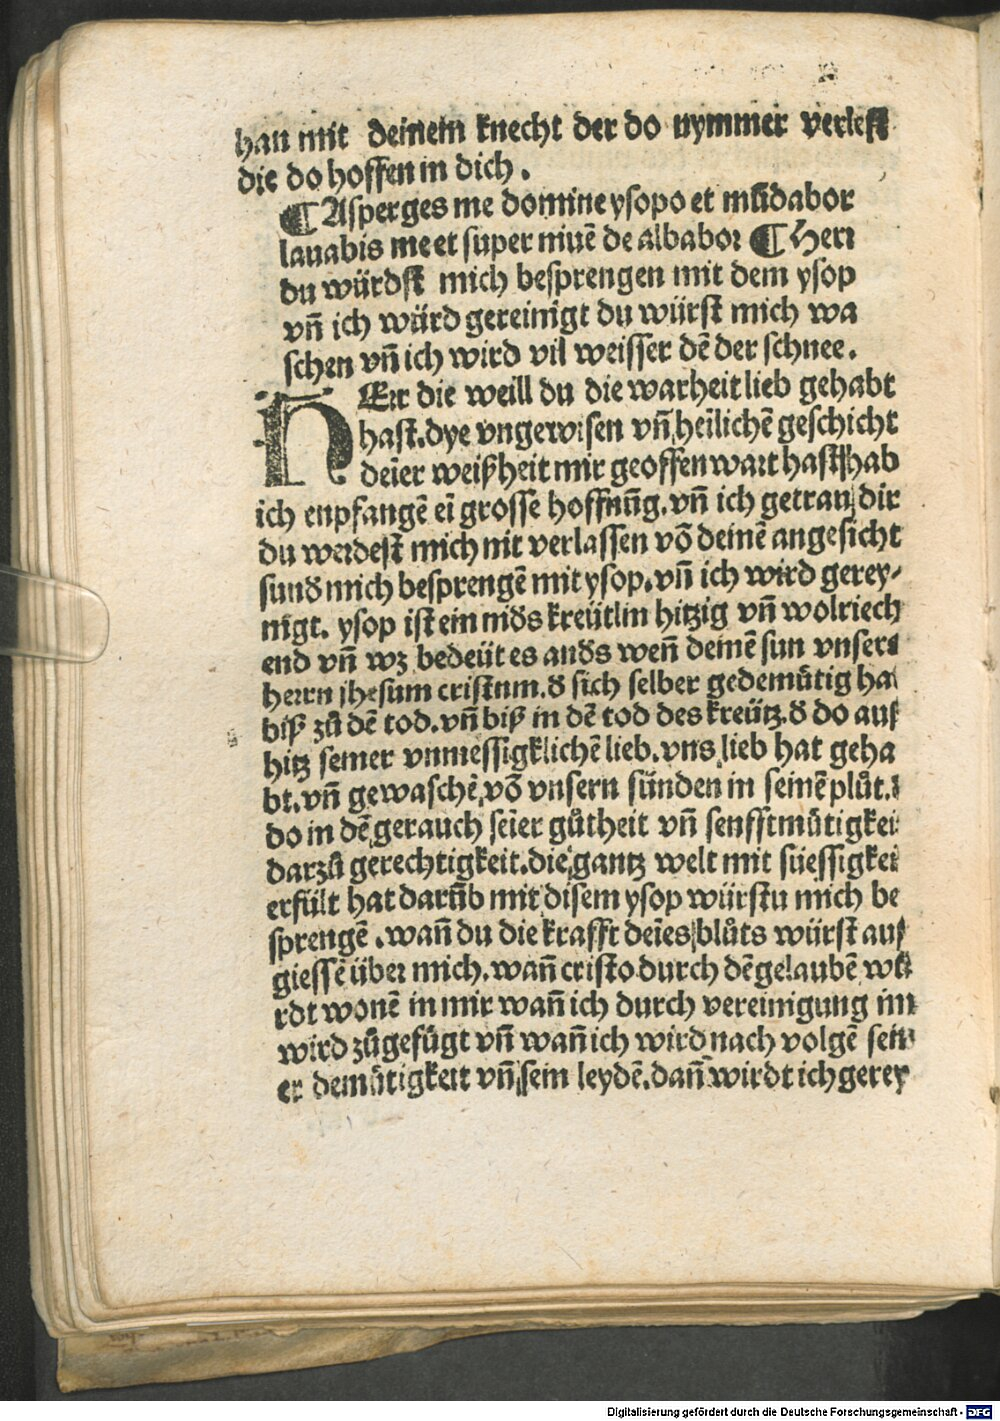 han mit deinem knecht der do nymmer verleſt
die do hoffen in dich.
¶ Aſperges me domine yſopo et mūdabor
lauabis me et ſuper niuē de albaboꝛ ¶ Herꝛ
du würdſt mich beſprengen mit dem yſop
vñ ich würd gereinigt du würſt mich wa
ſchen vñ ich wird vil weiſſer dē der ſchnee.
HErꝛ die weill du die warheit lieb gehabt
haſt. dye vngewiſen vñ heilichē geſchicht
deīer weiſzheit mir geoffenwaꝛt haſt hab
ich enpfangē eī groſſe hoffnūg. vñ ich getrau dir
du weꝛdeſt mich nit verlaſſen vō deinē angeſicht
ſunđ mich beſprengē mit yſop. vñ ich wird gerey⸗
nigt. yſop iſt ein niđs kreütlin hitzig vñ wolriech
end vñ wz bedeüt es anđs weñ deinē ſun vnſerꝛ
herꝛn jheſum criſtum. đ ſich ſelber gedemütig ha
biſz zů dē tod. vñ biſz in dē tod des kreütz. đ do auſz
hitz ſeiner vnmeſſigklichē lieb. vns lieb hat geha
bt. vñ gewaſchē vō vnſern ſünden in ſeinē plůt.
do in dē gerauch ſeīer gůtheit vñ ſenfftmütigkei
darzů gerechtigkeit. die gantz welt mit ſüeſſigkei
erfült hat darūb mit diſem yſop würſtu mich be
ſprengē. wañ du die krafft deīes blůts würſt auſz
gieſſē über mich. wañ criſto durch dē gelaubē wü
rdt wonē in mir wañ ich durch vereinigung im
wird zůgefügt vñ wañ ich wird nach volgē ſein
er demütigkeit vñ ſein leydē. dañ wirdt ich gerey
Digitalisierung gefördert durch die Deutsche Forschungsgemeinschaft - DFG